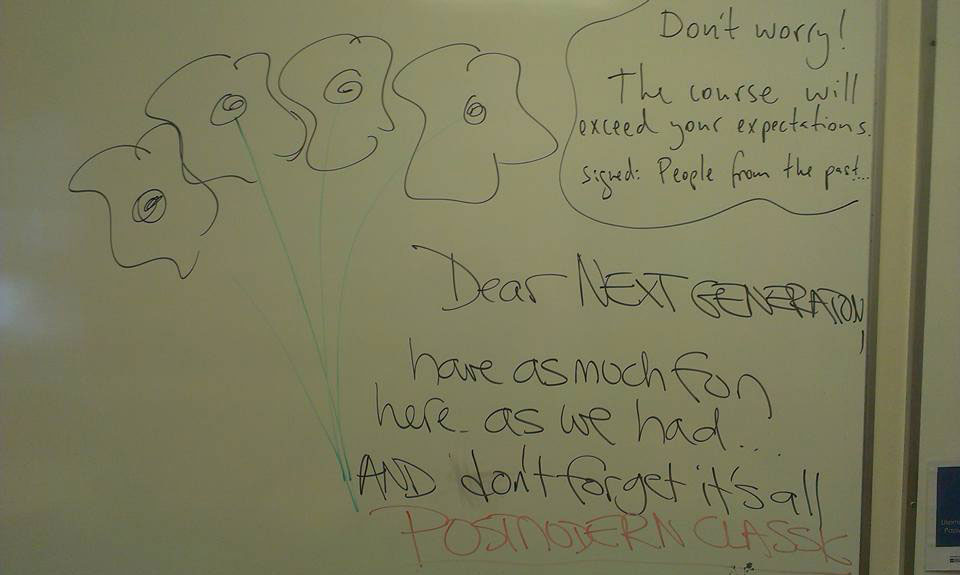 Don't worry!
The course will
exceed your expectations.
signed: People from the past...
Dear NEXT GENERATION,
have as much fun
here as we had...
AND don't forget it's all
POSTMODERN CLASSK